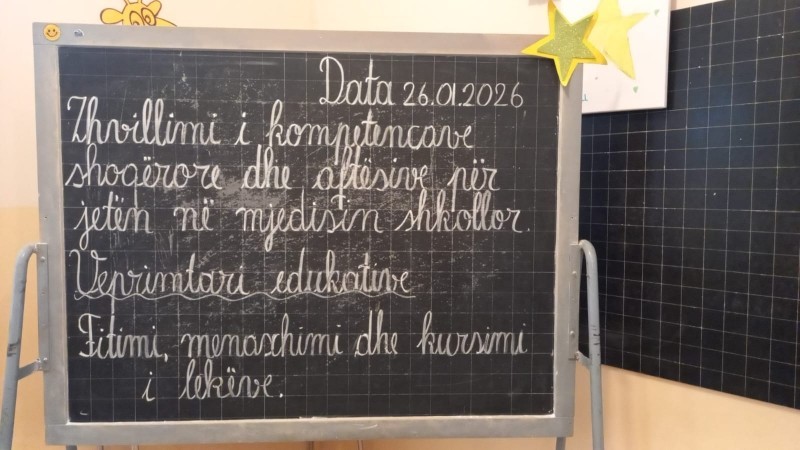 Data 26.01.2026
Zhvillimi i kompetencave
shoqërore dhe aftësive për
jetën në mjedisin shkollor.
Veprimtari edukative
Fitimi, menaxhimi dhe kursimi
i lekëve.